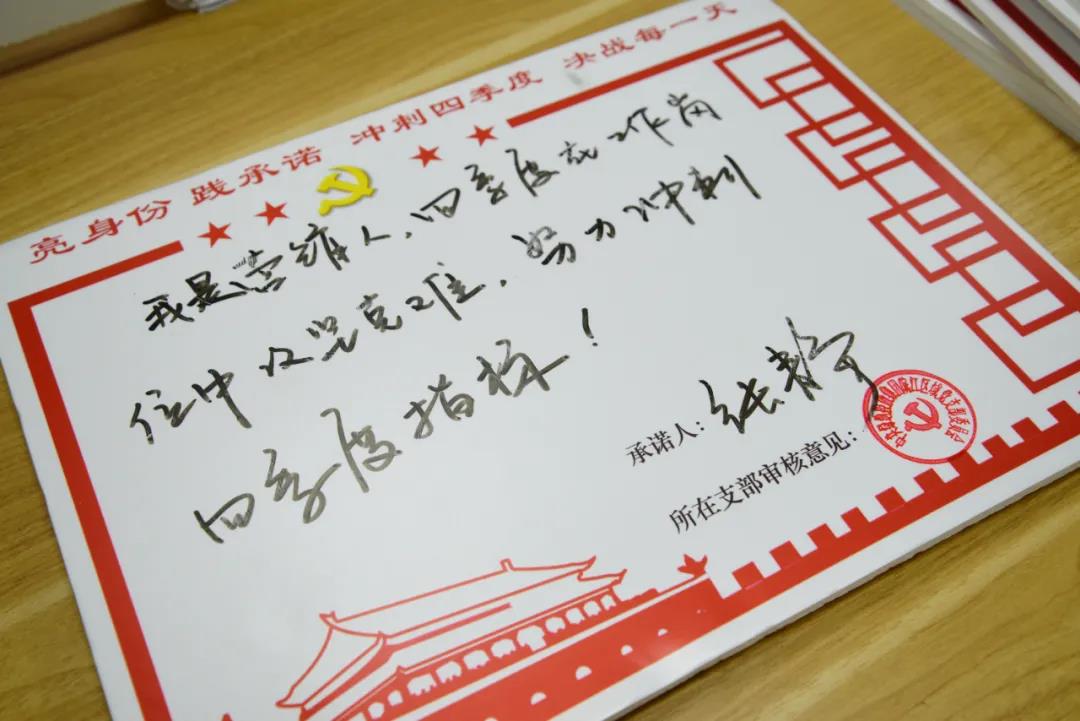 亮身份 践承诺 冲刺四季度 决战每一天
我是营维人，四季度在工作岗
位中攻坚克难，努力冲刺
四季度指标！
承诺人：张静
所在支部审核意见：